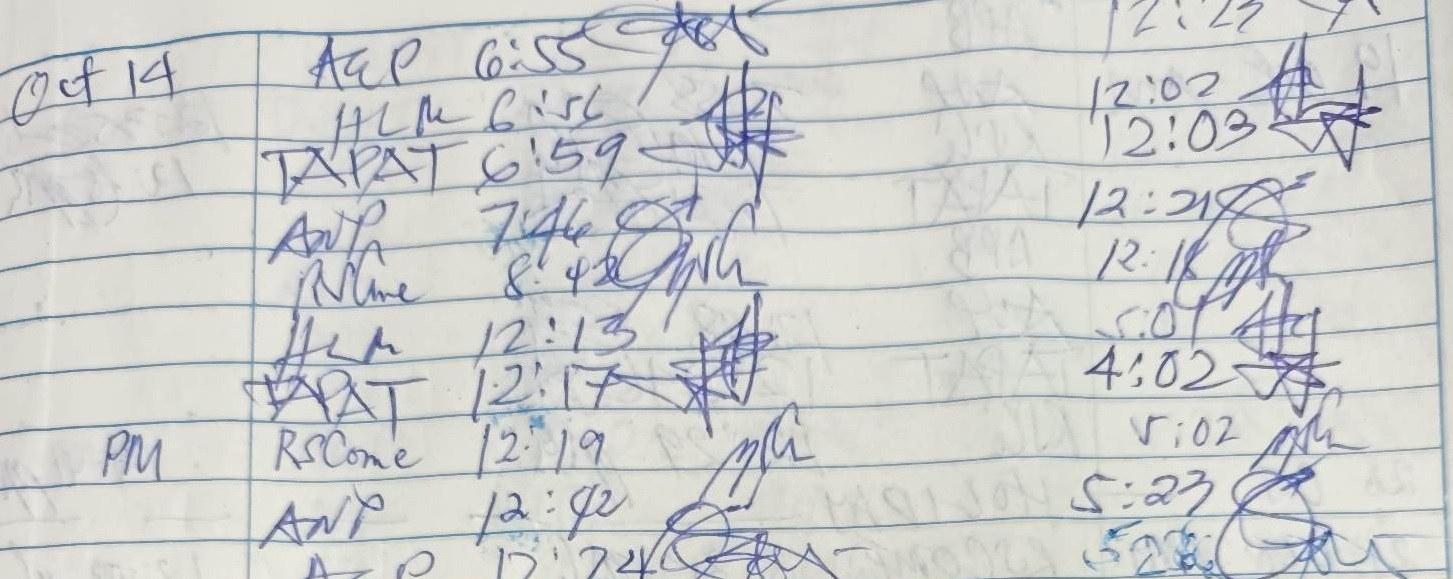 Oct 14 AEP 6:55 12:23
HLM 6:56 12:02
TAPAT 6:59 12:03
ANP 7:46 12:21
RSCome 8:42 12:18
HLM 12:13 5:01
TAPAT 12:17 4:02
PM RSCome 12:19 5:02
ANP 12:42 5:23
12:24